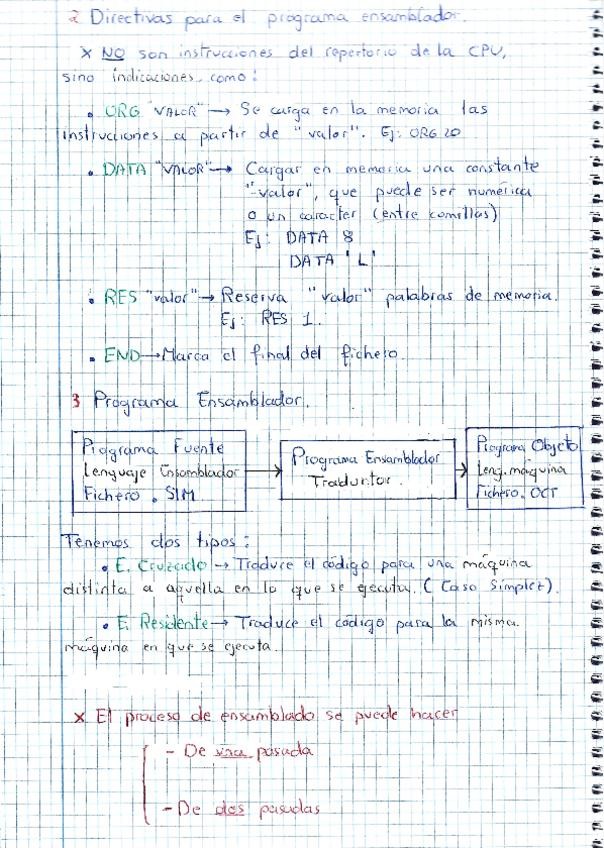 2 Directivas para el programa ensamblador.
x NO son instrucciones del repertorio de la CPU,
sino indicaciones como:
• ORG "VALOR" → Se carga en la memoria las
instrucciones a partir de "valor". Ej: ORG 20
• DATA "VALOR" → Cargar en memoria una constante
"valor", que puede ser numérica
o un caracter (entre comillas)
Ej: DATA 8
DATA 'L'
• RES "valor" → Reserva "valor" palabras de memoria.
Ej: RES 1.
• END → Marca el final del fichero.
3 Programa Ensamblador.
Programa Fuente
Lenguaje Ensamblador
Fichero . SIM
Programa Ensamblador
Traductor.
Programa Objeto
Leng. máquina
Fichero. OCT
Tenemos dos tipos:
• E. Cruzado → Traduce el código para una máquina
distinta a aquella en la que se ejecuta. (Caso Simplez).
• E. Residente → Traduce el código para la misma
máquina en que se ejecuta.
x El proceso de ensamblado se puede hacer
- De una pasada
- De dos pasadas